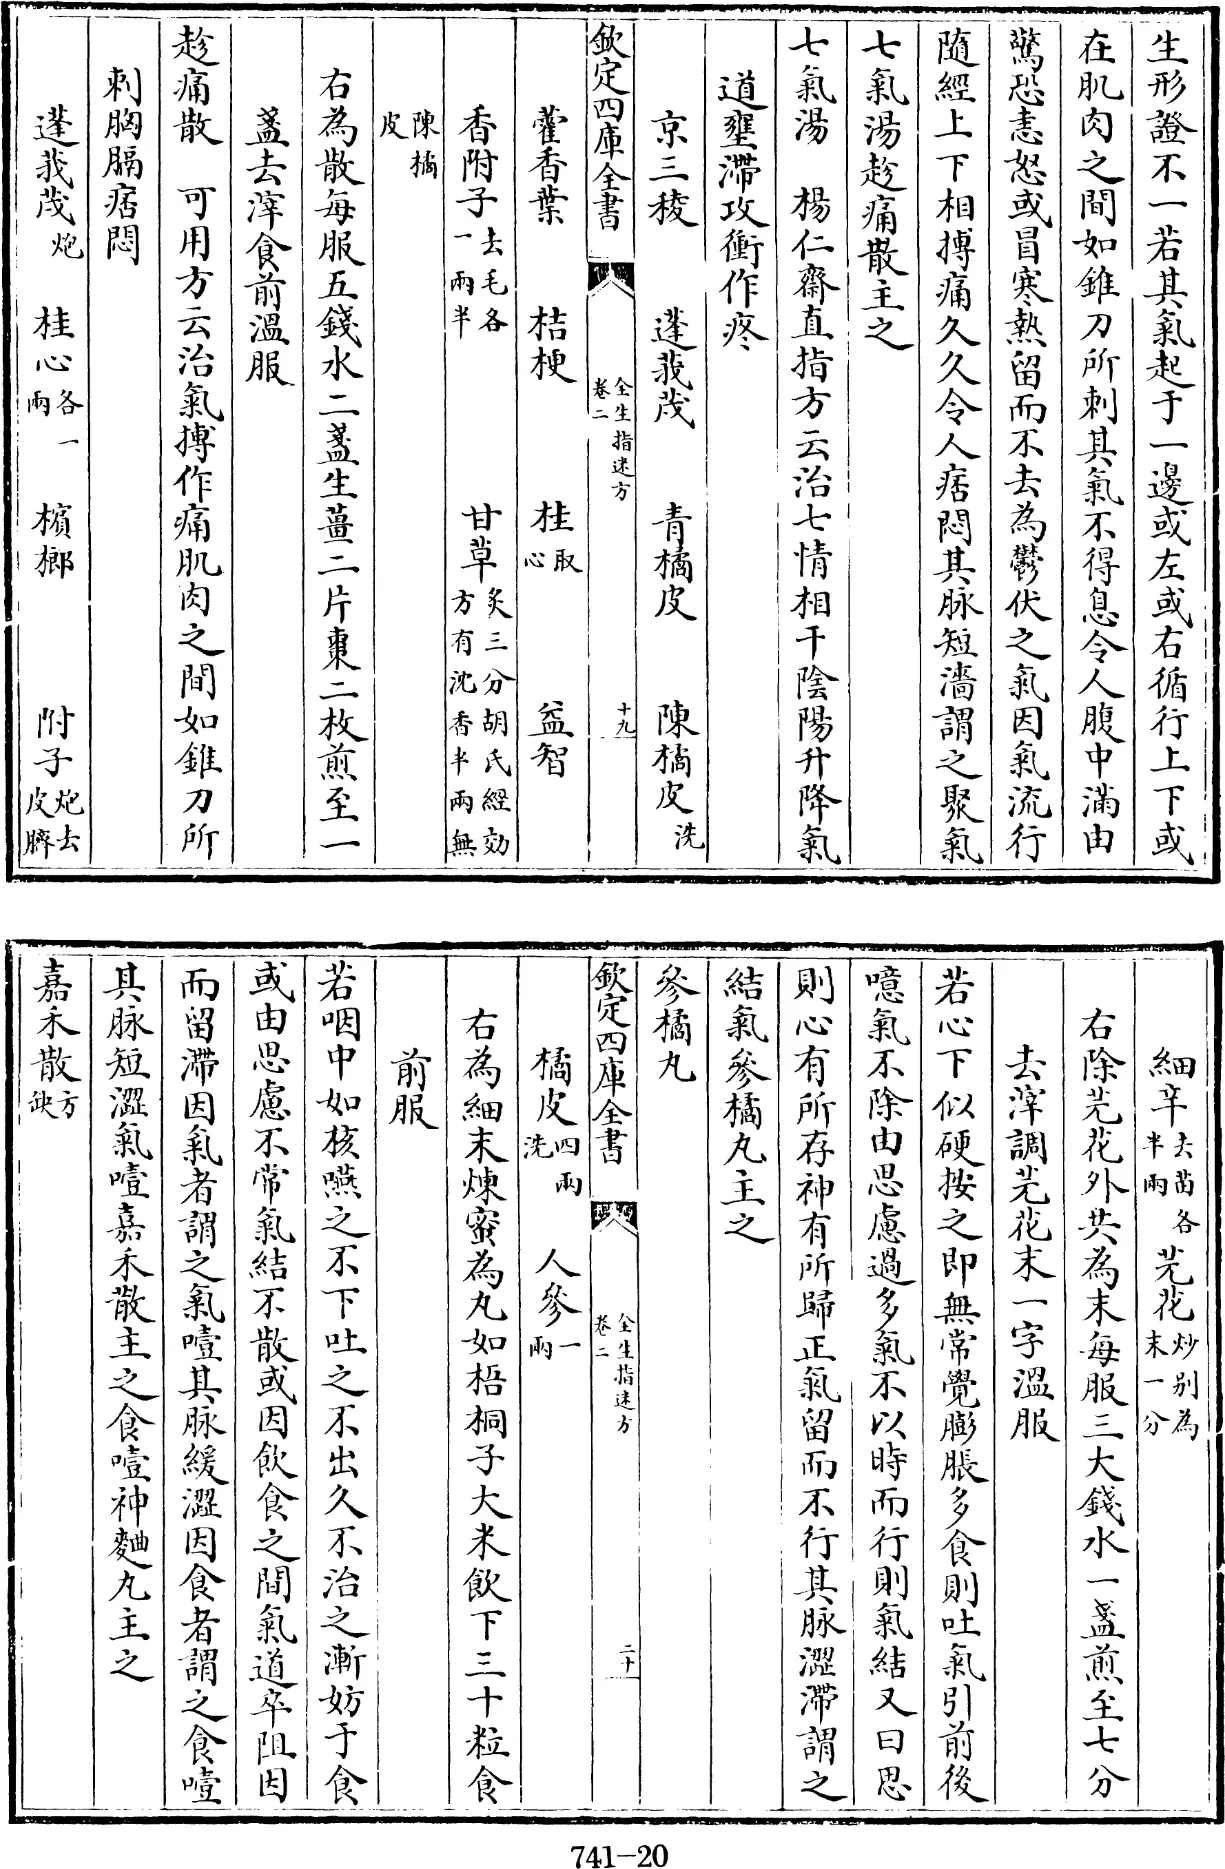 生形證不一若其氣起于一邊或左或右循行上下或
在肌肉之間如錐刀所刺其氣不得息令人腹中滿由
驚恐恚怒或冒寒熱留而不去為鬱伏之氣因氣流行
隨經上下相搏痛久久令人痞悶其脉短濇謂之聚氣
七氣湯趁痛散主之
七氣湯 楊仁齋直指方云治七情相干陰陽升降氣
道壅滯攻衝作疼
京三稜 蓬莪茂 青橘皮 陳橘皮洗
欽定四庫全書 全生指迷方卷二 十九
藿香葉 桔梗 桂取心 益智
香附子去毛各一兩半 甘草炙三分胡氏經効方有沈香半兩無
陳橘皮
右為散每服五錢水二盞生薑二片棗二枚煎至一
盞去滓食前溫服
趁痛散 可用方云治氣搏作痛肌肉之間如錐刀所
刺胸膈痞悶
蓬莪茂炮 桂心各一兩 檳榔 附子炮去皮臍
細辛去苗各半兩 芫花炒别為末一分
右除芫花外共為末每服三大錢水一盞煎至七分
去滓調芫花末一字溫服
若心下似硬按之即無常覺膨脹多食則吐氣引前後
噫氣不除由思慮過多氣不以時而行則氣結又曰思
則心有所存神有所歸正氣留而不行其脉澀滯謂之
結氣參橘丸主之
參橘丸
欽定四庫全書 全生指迷方卷二 二十
橘皮四兩洗 人參一兩
右為細末煉蜜為丸如梧桐子大米飲下三十粒食
前服
若咽中如核嚥之不下吐之不出久不治之漸妨于食
或由思慮不常氣結不散或因飲食之間氣道卒阻因
而留滯因氣者謂之氣噎其脉緩澀因食者謂之食噎
其脉短澀氣噎嘉禾散主之食噎神麯丸主之
嘉禾散方缺
741-20